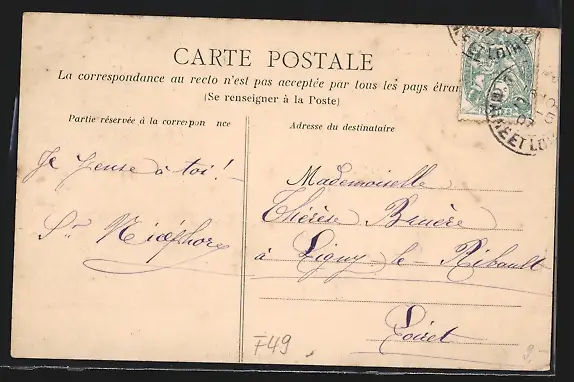 CARTE POSTALE
La correspondance au recto n'est pas acceptée par tous les pays étran
(Se renseigner à la Poste)
Partie réservée à la correspon nce
Adresse du destinataire
Je pense à toi!
Sr Nicéphore
Mademoiselle
Thérèse Bruère
à Ligny le-Ribault
Loiret
F49
9.-
ET LOIRE
07